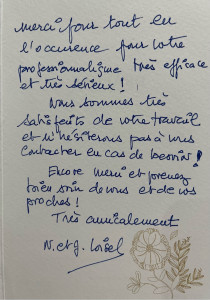 Merci pour tout en
l'occurence pour votre
professionnalisme très efficace
et très sérieux !
Nous sommes très
satisfaits de votre travail
et n'hésiterons pas à vous
contacter en cas de besoin !
Encore merci et prenez
bien soin de vous et de vos
proches !
Très amicalement
N. et J. Loisel